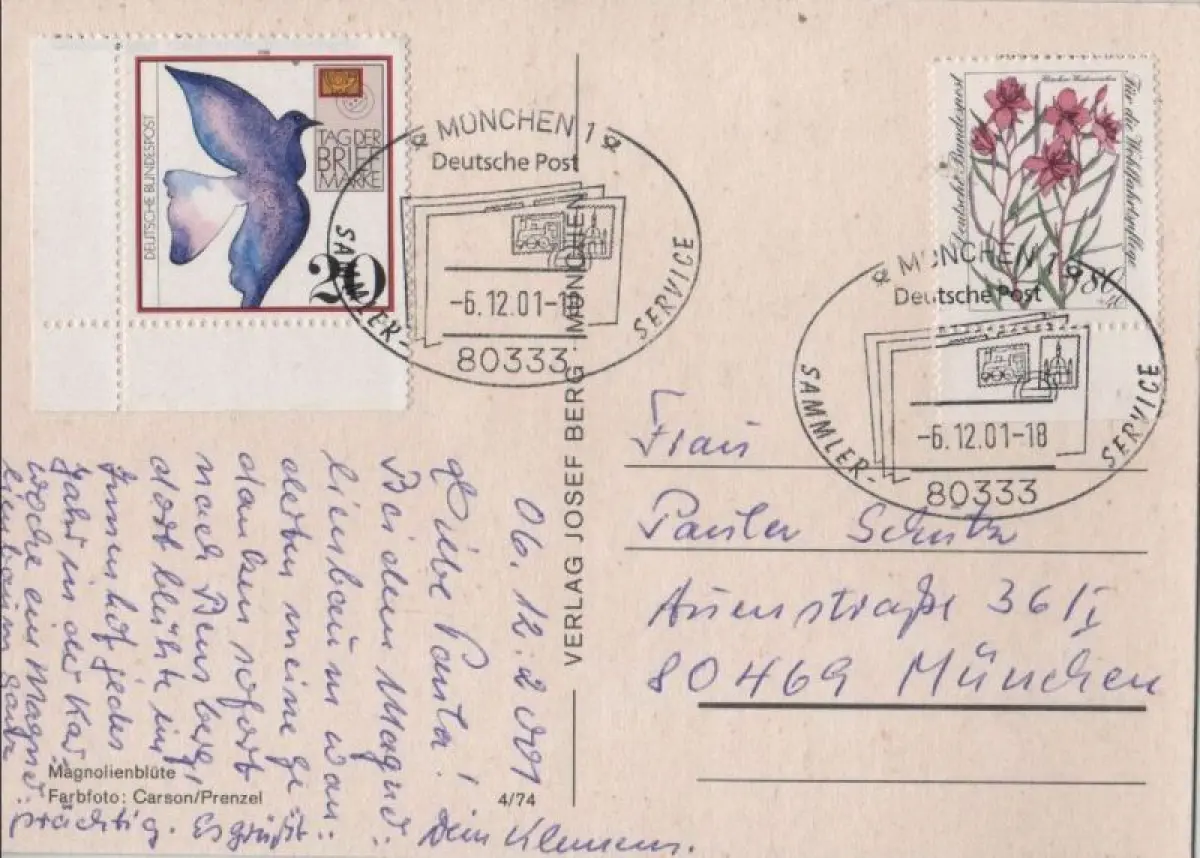 DEUTSCHE BUNDESPOST
TAG DER
BRIEF
MARKE
20
MÜNCHEN 1
Deutsche Post
-6.12.01-18
80333
SAMMLER-
SERVICE
Deutsche Bundespost
Für die Wohlfahrtspflege
80
MÜNCHEN 1
Deutsche Post
-6.12.01-18
80333
SAMMLER-
SERVICE
VERLAG JOSEF BERG · MÜNCHEN
06.12.2001
Liebe Paula!
Bei dem Magno-
lienbaum wan-
derten meine Ge-
danken sofort
nach
dort blühte im
Innenhof jedes
Jahr in der Kar
woche ein Magno-
lienbaum ganz
prächtig. Es grüßt
Dein Klemens.
Frau
Schutz
Auenstraße 36/I
80469 München
Magnolienblüte
Farbfoto: Carson/Prenzel
4/74